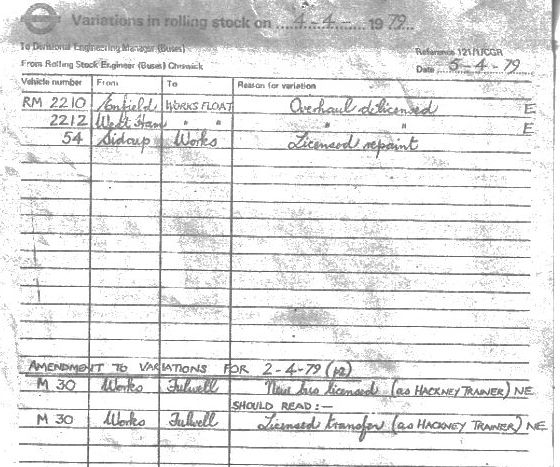 Variations in rolling stock on 4-4- 1979
To Divisional Engineering Manager (Buses)
From Rolling Stock Engineer (Buses) Chiswick
Reference 121/1JCGR
Date 5-4-79
Vehicle number From To Reason for variation
RM 2210 Enfield WORKS FLOAT Overhaul delicensed E
2212 West Ham " " " " E
54 Sidcup Works Licensed repaint
AMENDMENT TO VARIATIONS FOR 2-4-79
M 30 Works Fulwell New bus licensed (as HACKNEY TRAINER) NE
SHOULD READ:—
M 30 Works Fulwell Licensed transfer (as HACKNEY TRAINER) NE